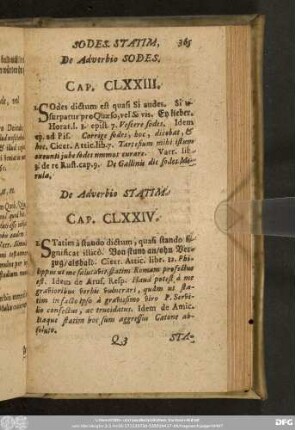 SODES. STATIM, 365
De Adverbio SODES,
CAP. CLXXIII.
SOdes dictum est quasi Si audes. Si
surpatur pro Quæso, vel Si vis.
Horat. l. 1. epist. 7. Vescere sodes. Idem
ad Pis. Corrige sodes, hoc, ajebat, &
hoc. Cicer. Attic. lib. 7. Tartessum istum
tuo jube sodes nummos curare. Varr. lib.
3. de re Rust. cap. 9. De Gallinis dic sodes Me-
rula,
De Adverbio STATIM.
CAP. CLXXIV.
STatim à stando dictum, quasi stando si-
gnificat illicò. Von stund an/ohn Ver-
zug/alsbald. Cicer. Attic. libr. 12. Phi-
lippus ut me salutavit, statim Romam profectus
est. Idem de Arusp. Resp. Haud potest, à me
gravioribus verbis vulnerari, quàm ut sta-
tim in facto ipso à gravissimo viro P. Servi-
lio confectus, ac trucidatur. Idem de Amic.
Itaque statim hoc sum aggressus Catone ab-
soluto.
Q3 STA-